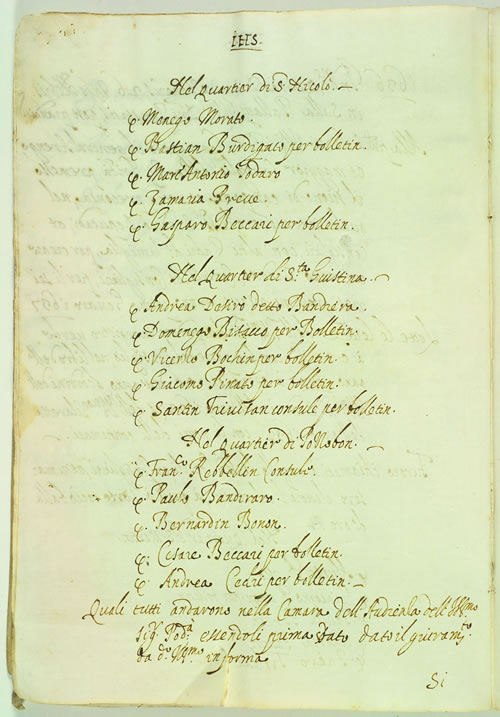 IHS.
Nel quartier di S. Nicolò.
q. Menego Morato.
q. Bastian Burdigato per bolletin.
q. Marc'Antonio Todaro
q. Zamaria Breue
q. Gasparo Beccari per bolletin.
Nel quartier di S.ta Giustina.
q. Andrea Desirò detto Bandiera.
q. Domenego Bitacco per Bolletin.
q. Vicenzo Bochin per bolletin.
q. Giacomo Pinato per bolletin.
q. Santin consule per bolletin.
Nel quartier di
q. Fran.co Rebbellin Consule.
q. Paulo Bandiraro.
q. Bernardin Bonon.
q. Cesare Beccari per bolletin.
q. Andrea per bolletin.
Quali tutti andarono nella Camara dell'Audienza dell'Ill.mo
Sig.r Pod.à essendoli prima dato il giuram.to
da d.o Ill.mo in forma
Si